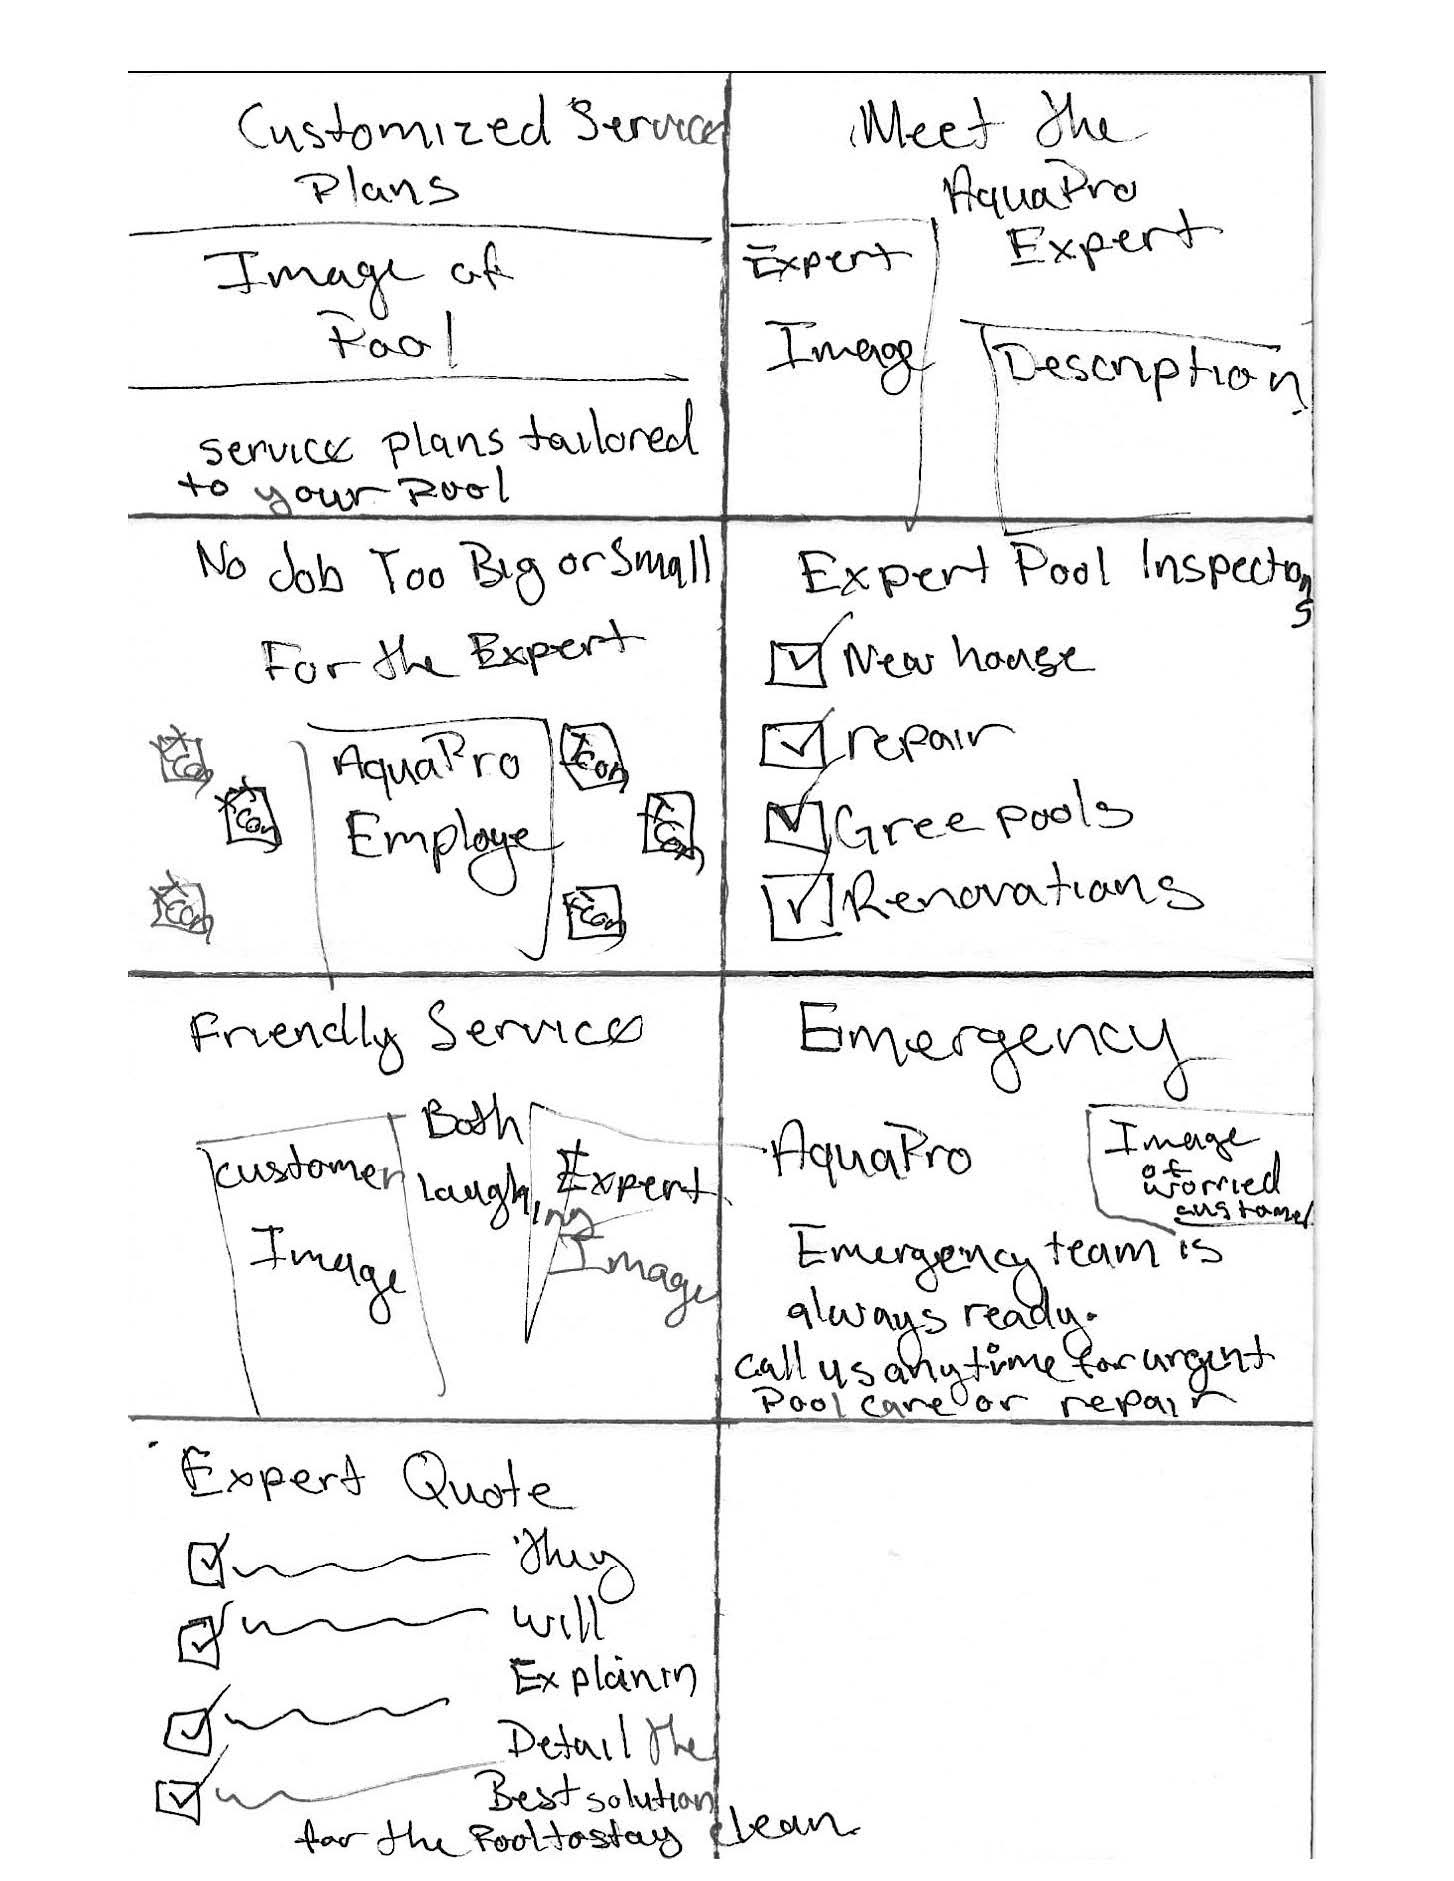 Customized Service
Plans
Image of
Pool
service plans tailored
to your Pool
Meet the
AquaPro
Expert
Expert
Image
Description
No Job Too Big or Small
For the Expert
Icon
Icon
Icon
AquaPro
Employe
Icon
Icon
Icon
Expert Pool Inspections
New house
repair
Gree pools
Renovations
Friendly Service
customer
Image
Both
laughing
Expert
Image
Emergency
AquaPro
Image
of
worried
customer
Emergency team is
always ready.
call us anytime for urgent
Pool care or repair
Expert Quote
They
will
Explain in
Detail the
Best solution
for the Pool to stay clean